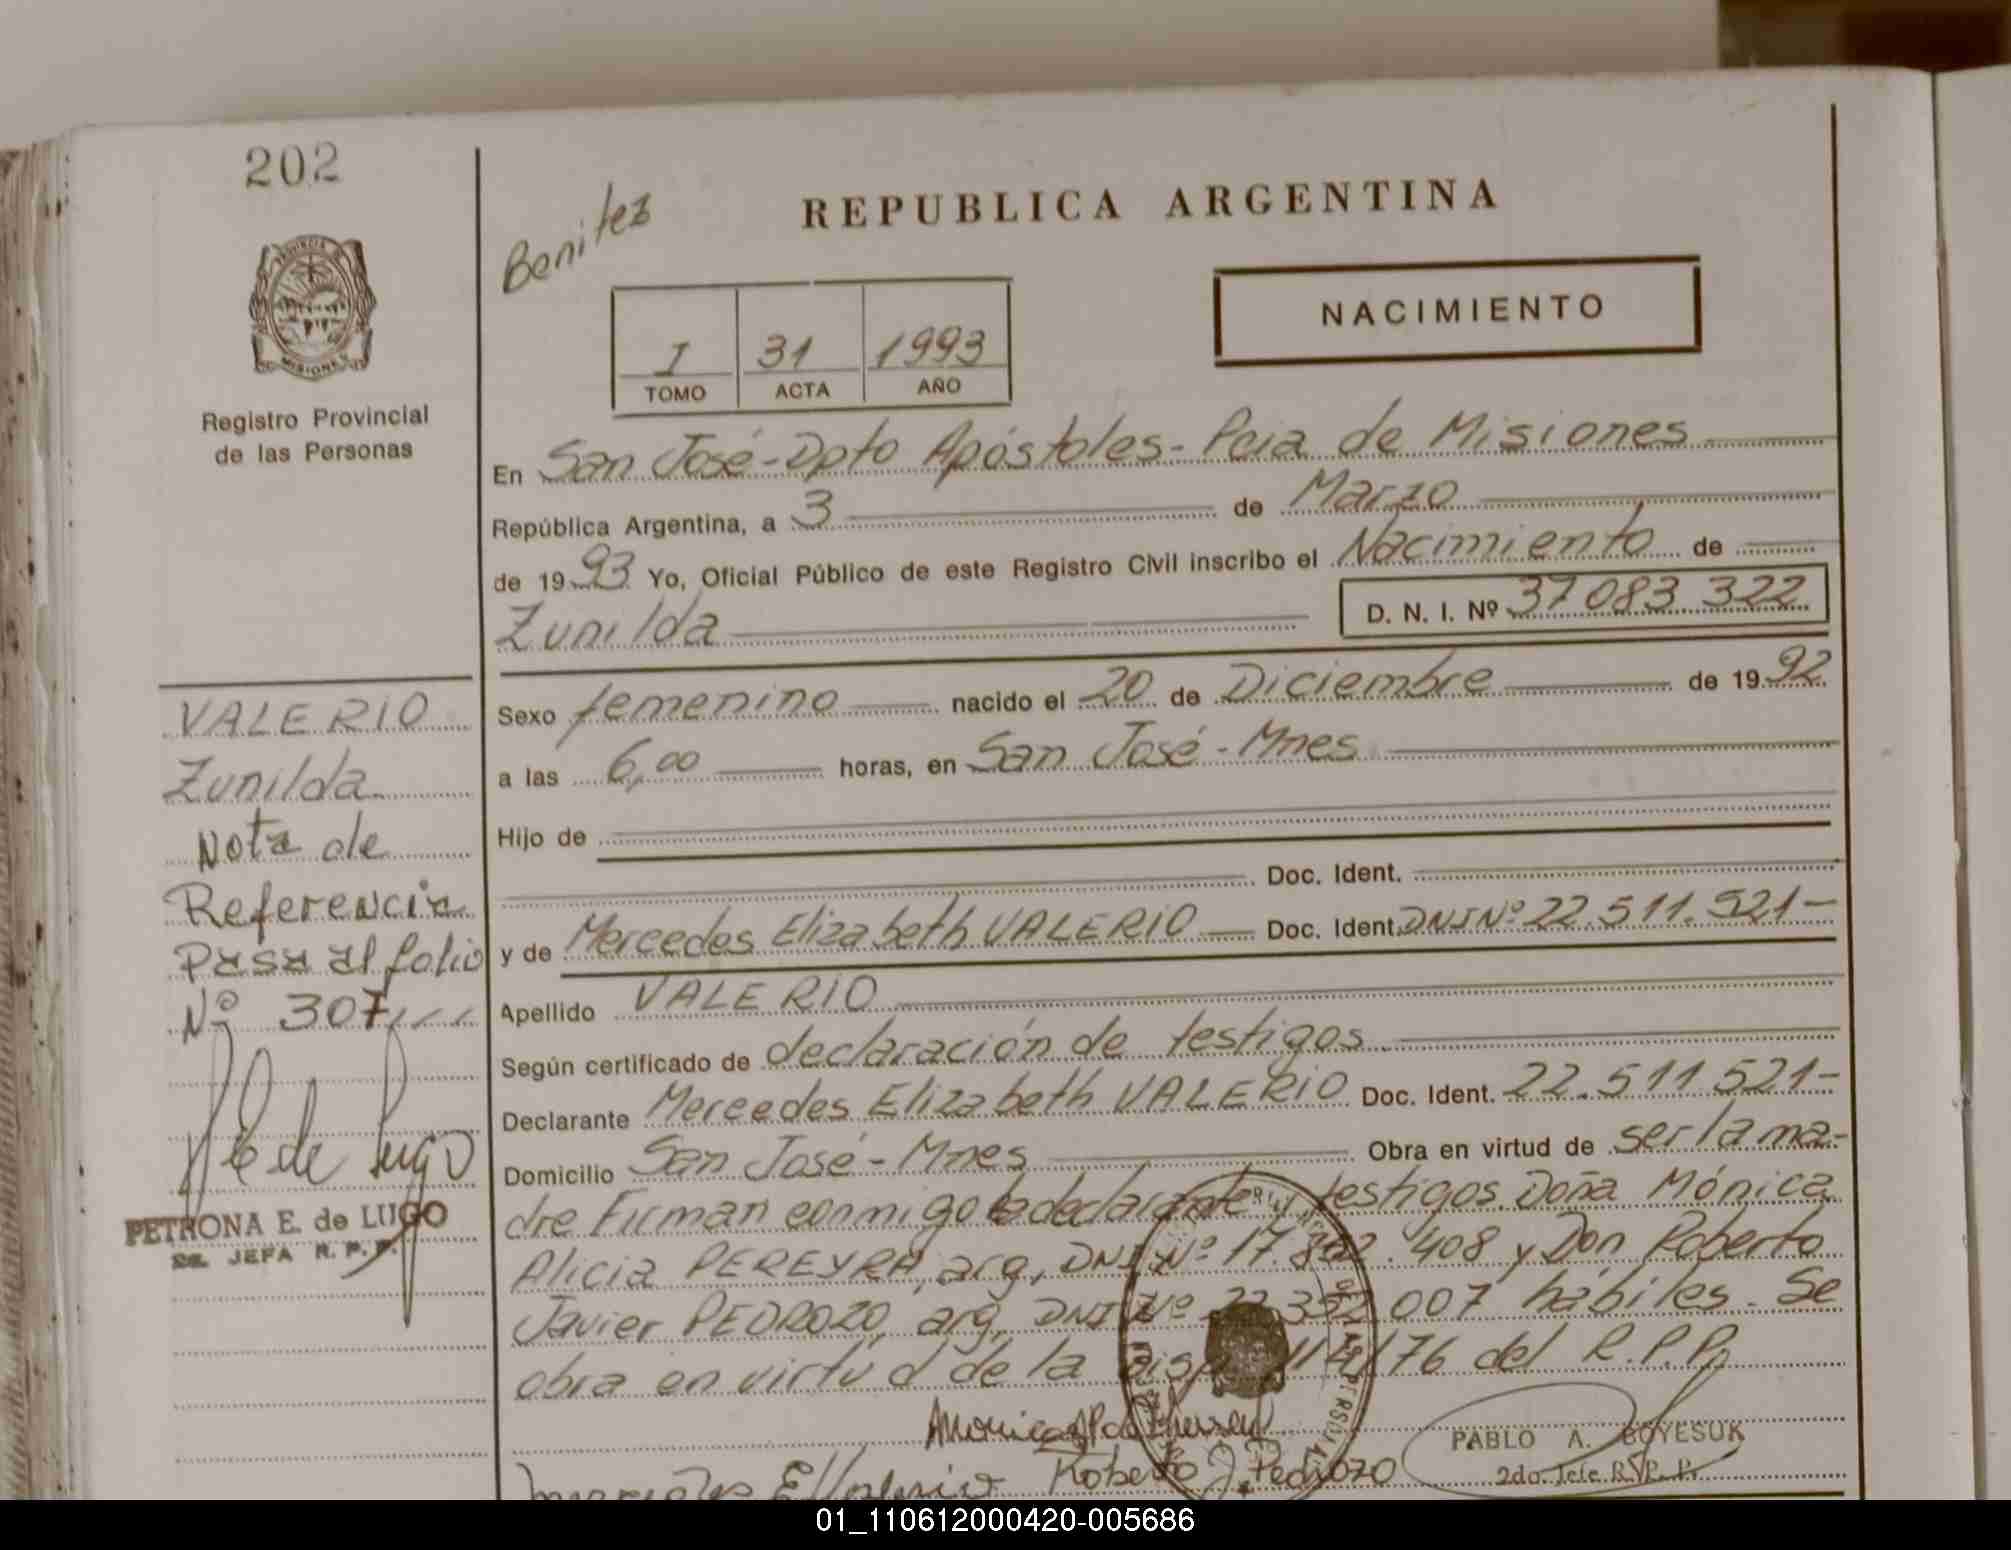 202
Benitez
REPUBLICA ARGENTINA
PROVINCIA DE
MISIONES
NACIMIENTO
I 31 1993
TOMO ACTA AÑO
Registro Provincial
de las Personas
En San José - Dpto Apóstoles - Pcia de Misiones
República Argentina, a 3 de Marzo
de 1993 Yo, Oficial Público de este Registro Civil inscribo el Nacimiento de
Zunilda D. N. I. Nº 37 083 322
Sexo femenino nacido el 20 de Diciembre de 1992
a las 6,00 horas, en San José - Mnes
Hijo de
Doc. Ident.
y de Mercedes Elizabeth VALERIO Doc. Ident. DNI Nº 22.511.521-
Apellido VALERIO
Según certificado de declaración de testigos
Declarante Mercedes Elizabeth VALERIO Doc. Ident. 22.511.521-
Domicilio San José - Mnes Obra en virtud de ser la ma-
dre Firman conmigo la declarante testigos Doña Mónica
Alicia PEREYRA, arg, DNI Nº 17. 408 y Don Roberto
Javier PEDROZO, arg, DNI Nº 007 hábiles. Se
obra en virtud de la 176 del R.P.P.
VALERIO
Zunilda
Nota de
Referencia
Pasa al folio
Nº 307
PETRONA E. de LUGO
JEFA R. P. P.
Roberto J Pedrozo
PABLO A. BOYESUK
2do. Jefe R. P. P.
01_110612000420-005686